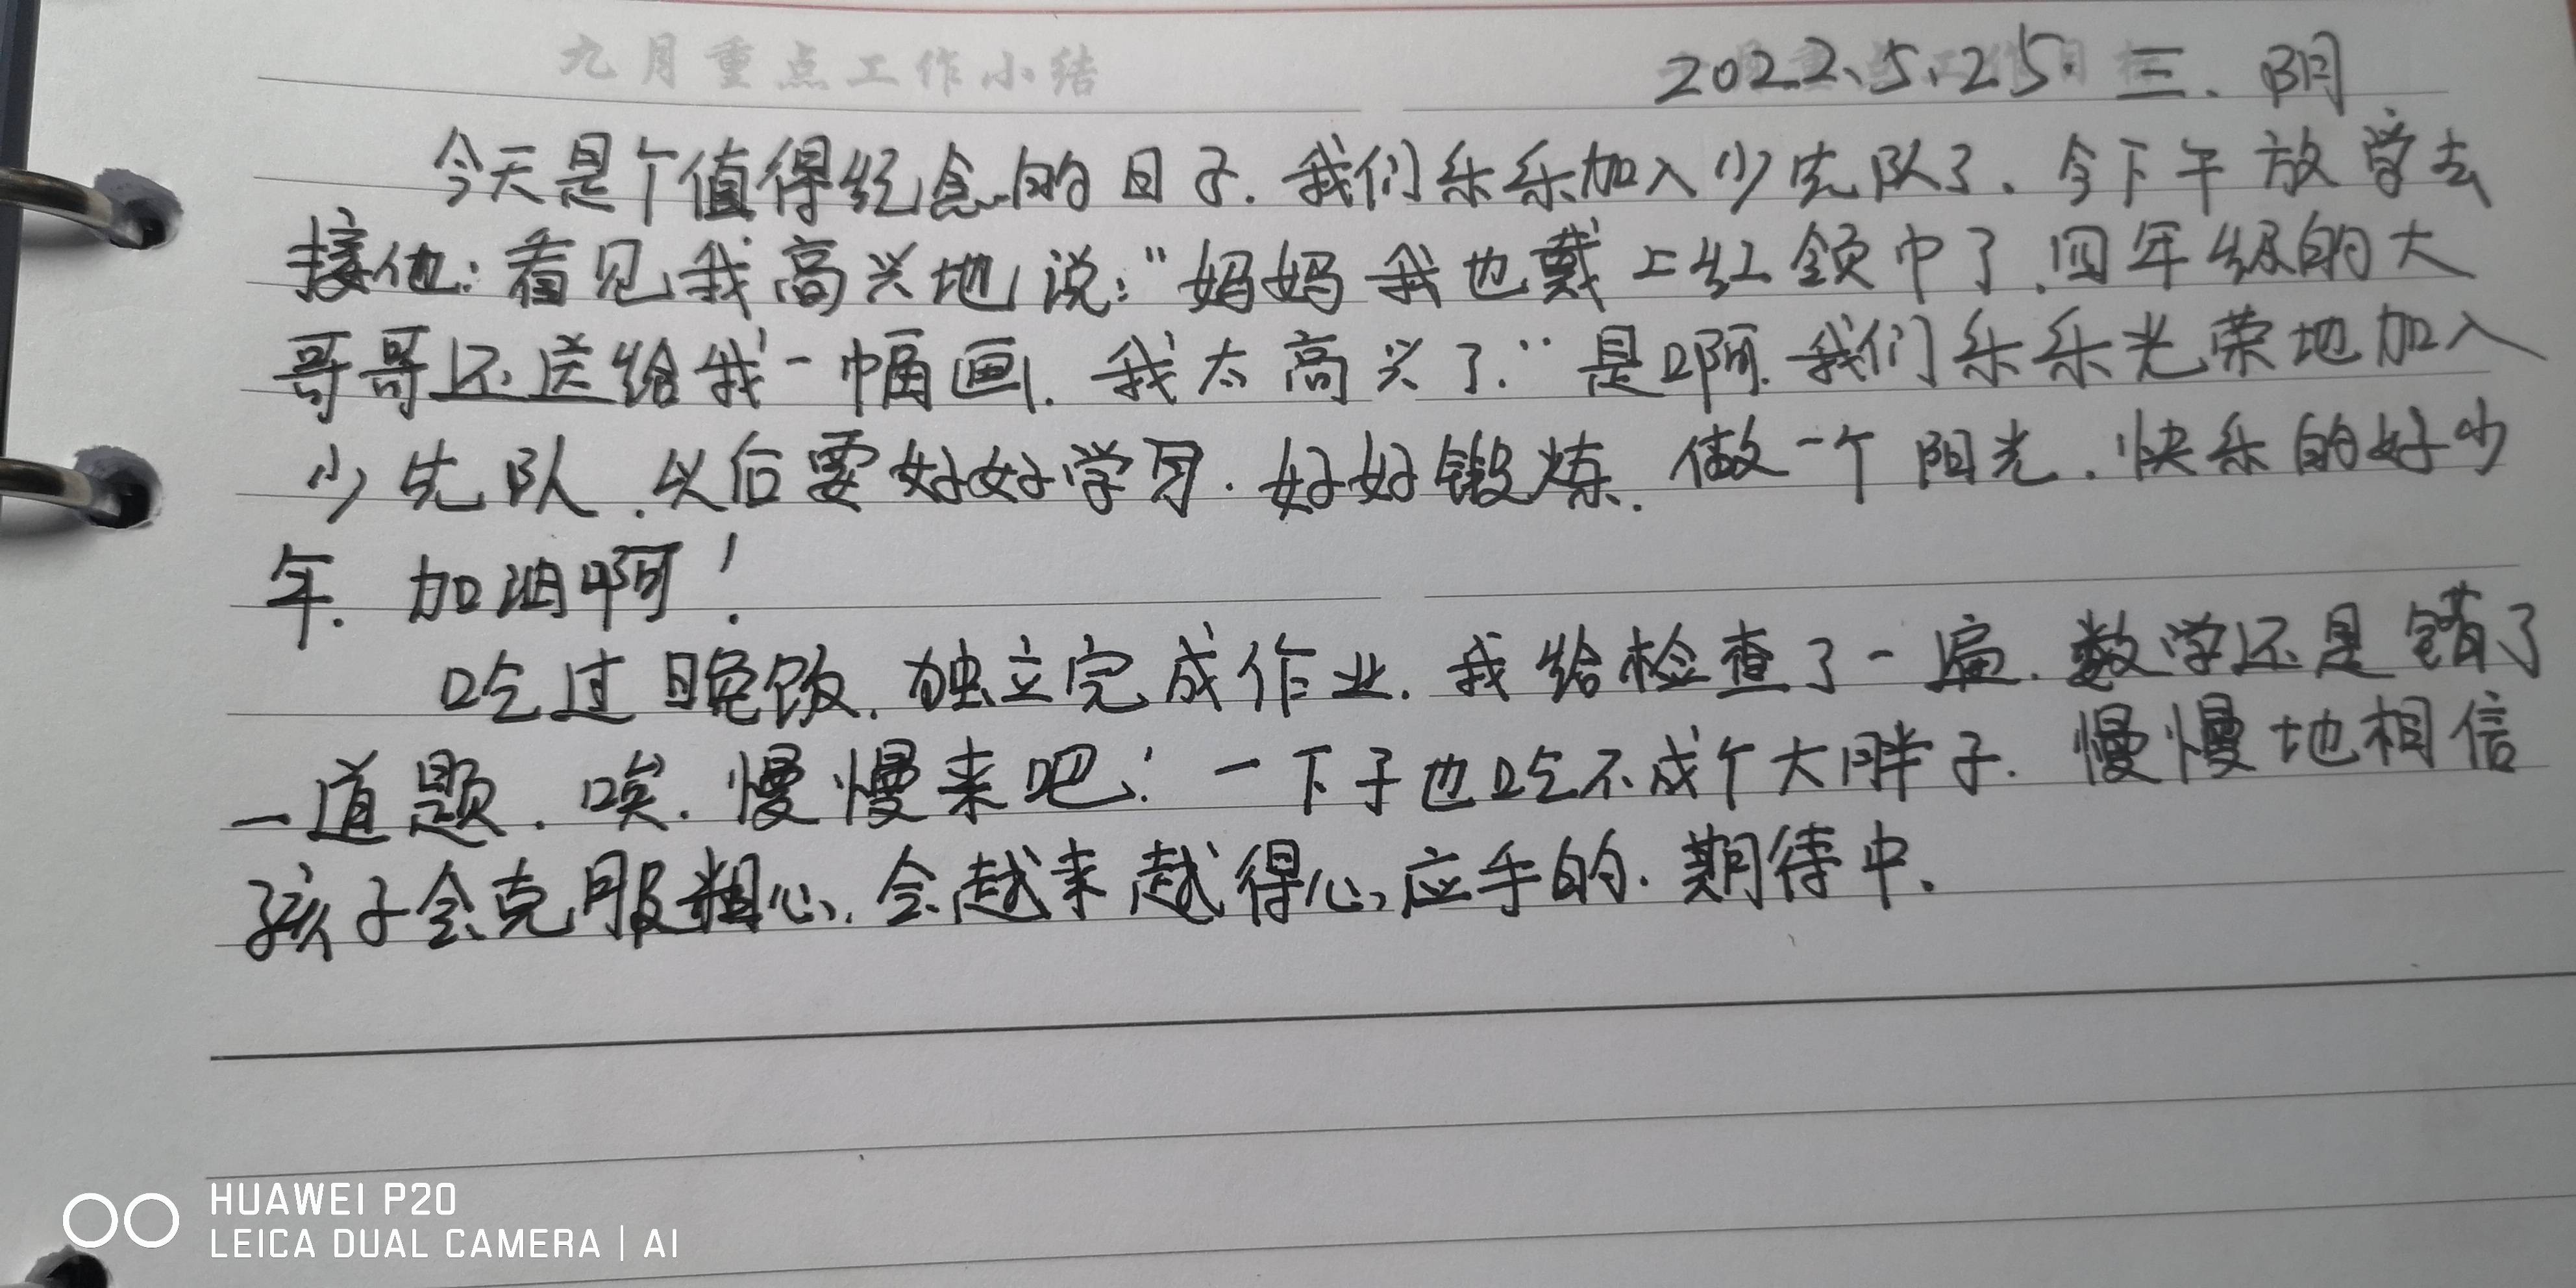 九月重点工作小结
2022、5、25. 三. 阴
今天是个值得纪念的日子. 我们乐乐加入少先队了. 今下午放学去
接他: 看见我高兴地说:“妈妈我也戴上红领巾了. 四年级的大
哥哥还送给我一幅画. 我太高兴了.” 是啊. 我们乐乐光荣地加入
少先队. 以后要好好学习. 好好锻炼. 做一个阳光. 快乐的好少
年. 加油啊!
吃过晚饭. 独立完成作业. 我给检查了一遍. 数学还是错了
一道题. 唉. 慢慢来吧! 一下子也吃不成个大胖子. 慢慢地相信
孩子会克服粗心. 会越来越得心应手的. 期待中.
HUAWEI P20
LEICA DUAL CAMERA | AI